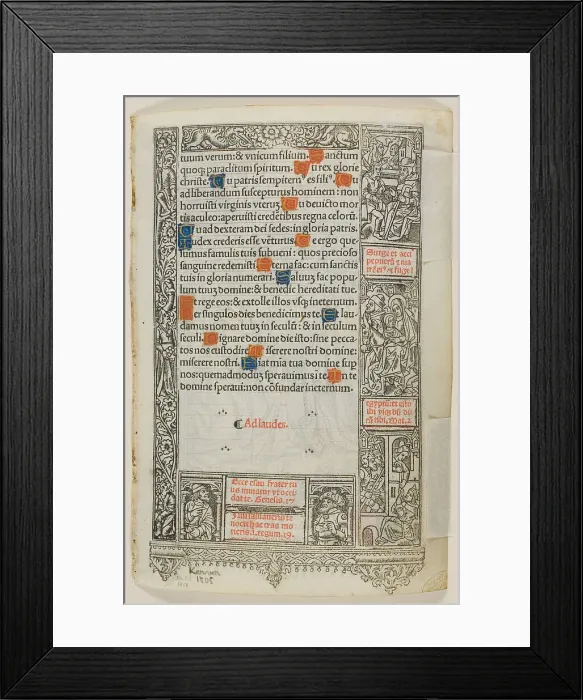 tuum verum: & vnicum filium. Sanctum
quoq; paraclitum spiritum. Tu rex glorie
christe. Tu patris sempitern⁹ es fili⁹. Tu
ad liberandum suscepturus hominem: non
horruisti virginis vterũ. Tu deuicto mor
tis aculeo: aperuisti credẽtibus regna celorũ.
Tu ad dexteram dei sedes: in gloria patris.
Iudex crederis esse vẽturus. Te ergo que
sumus famulis tuis subueni: quos precioso
sanguine redemisti. Eterna fac: cum sanctis
tuis in gloria numerari. Saluuʒ fac popu
lum tuuʒ domine: & benedic hereditati tue.
Et rege eos: & extolle illos vsq; in eternum.
Per singulos dies benedicimus te. Et lau
damus nomen tuuʒ in seculũ: & in seculum
seculi. Dignare domine die isto: sine pecca
to nos custodire. Miserere nostri domine:
miserere nostri. Fiat mĩa tua domine sup
nos: quemadmoduʒ sperauimus ĩ te. In te
domine speraui: non cõfundar in eternum.
Ad laudes.
Surge et acci
pe puerũ ⁊ ma
trẽ ei⁹ ⁊ fuge ĩ
egyptũ: et esto
ibi vsq; dũ di
cã tibi. Mat. 2
Ecce esau frater tu
us minatur vt occi
dat te. Genesis. 27
Nisi saluaueris te
nocte hac cras mo
rieris. 1. regum. 19.
Kerver
1505